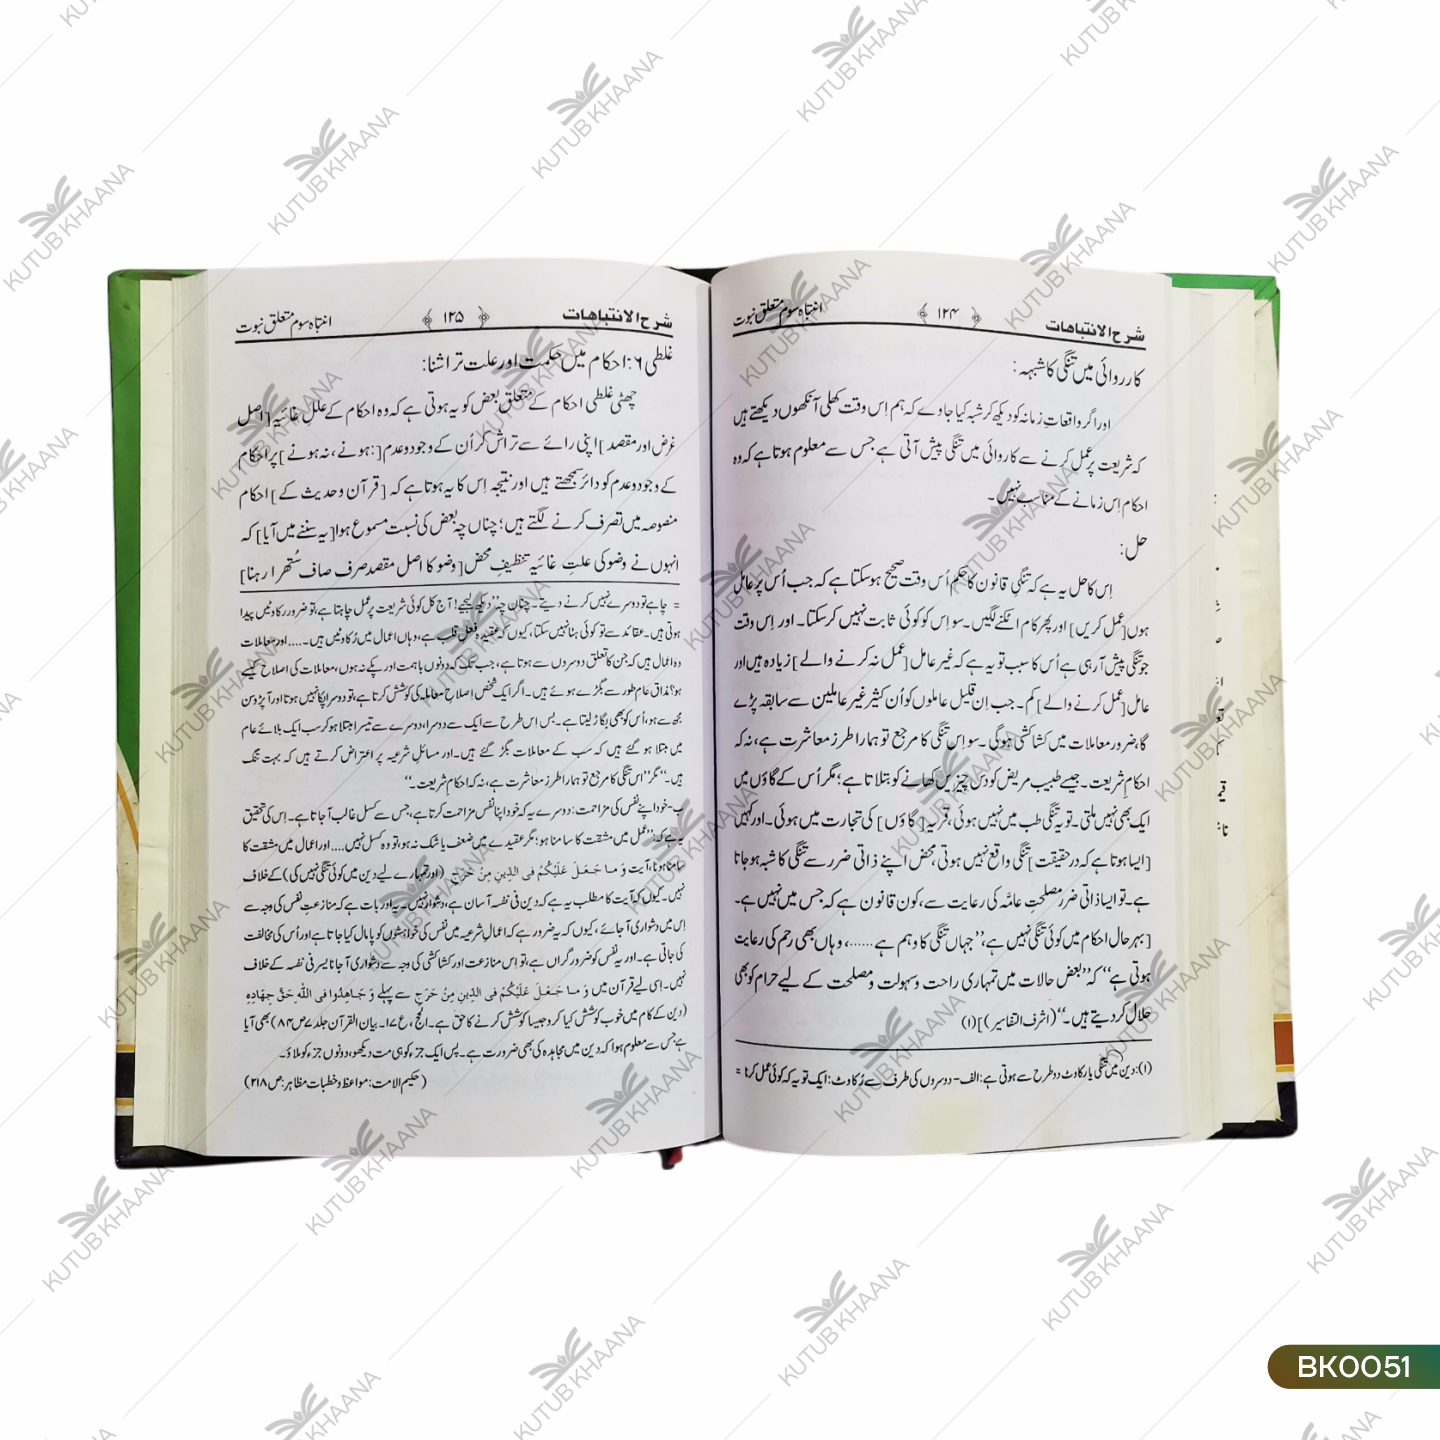 شرح الانتباهات ﴿ ۱۲۴ ﴾ انتباہ سوم متعلق نبوت
کارروائی میں تنگی کا شبہہ:
اور اگر واقعاتِ زمانہ کو دیکھ کر شبہ کیا جاوے کہ ہم اِس وقت کھلی آنکھوں دیکھتے ہیں
کہ شریعت پر عمل کرنے سے کاروائی میں تنگی پیش آتی ہے جس سے معلوم ہوتا ہے کہ وہ
احکام اِس زمانے کے مناسب نہیں۔
حل:
اِس کا حل یہ ہے کہ تنگیِ قانون کا حکم اُس وقت صحیح ہوسکتا ہے کہ جب اُس پر عامل
ہوں [عمل کریں] اور پھر کام اٹکنے لگیں۔ سو اِس کو کوئی ثابت نہیں کرسکتا۔ اور اِس وقت
جو تنگی پیش آرہی ہے اُس کا سبب تو یہ ہے کہ غیر عامل [عمل نہ کرنے والے] زیادہ ہیں اور
عامل [عمل کرنے والے] کم۔ جب اِن قلیل عاملوں کو اُن کثیر غیر عاملین سے سابقہ پڑے
گا، ضرور معاملات میں کشاکشی ہوگی۔ سو اِس تنگی کا مرجع تو ہمارا طرز معاشرت ہے، نہ کہ
احکامِ شریعت۔ جیسے طبیب مریض کو دس چیزیں کھانے کو بتلاتا ہے؛ مگر اُس کے گاؤں میں
ایک بھی نہیں ملتی۔ تو یہ تنگی طب میں نہیں ہوئی، قریہ [گاؤں] کی تجارت میں ہوئی۔ اور کہیں
[ایسا ہوتا ہے کہ درحقیقت] تنگی واقع نہیں ہوتی، محض اپنے ذاتی ضرر سے تنگی کا شبہ ہوجاتا
ہے۔ تو ایسا ذاتی ضرر مصلحتِ عامّہ کی رعایت سے، کون قانون ہے کہ جس میں نہیں ہے۔
[بہرحال احکام میں کوئی تنگی نہیں ہے، ’’جہاں تنگی کا وہم ہے......، وہاں بھی رحم کی رعایت
ہوتی ہے‘‘ کہ ’’بعض حالات میں تمہاری راحت و سہولت و مصلحت کے لیے حرام کو بھی
حلال کردیتے ہیں۔‘‘ (اشرف التفاسیر)] (۱)
(۱): دین میں تنگی یا رکاوٹ دو طرح سے ہوتی ہے: الف- دوسروں کی طرف سے رُکاوٹ: ایک تو یہ کہ کوئی عمل کرنا =
شرح الانتباهات ﴿ ۱۲۵ ﴾ انتباہ سوم متعلق نبوت
غلطی ۶: احکام میں حکمت اور علت تراشنا:
چھٹی غلطی احکام کے متعلق بعض کو یہ ہوتی ہے کہ وہ احکام کے عللِ غائیہ [اصل
غرض اور مقصد] اپنی رائے سے تراش کر اُن کے وجود و عدم [: ہونے، نہ ہونے] پر احکام
کے وجود و عدم کو دائر سمجھتے ہیں اور نتیجہ اِس کا یہ ہوتا ہے کہ [قرآن و حدیث کے] احکام
منصوصہ میں تصرف کرنے لگتے ہیں؛ چناں چہ بعض کی نسبت مسموع ہوا [یہ سننے میں آیا] کہ
انہوں نے وضو کی علتِ غائیہ تنظیفِ محض [وضو کا اصل مقصد صرف صاف سُتھرا رہنا]
= چاہے تو دوسرے نہیں کرنے دیتے۔ چناں چہ ’’دیکھ لیجیے! آج کل کوئی شریعت پر عمل چاہتا ہے، تو ضرور رکاوٹیں پیدا
ہوتی ہیں۔ عقائد سے تو کوئی ہٹا نہیں سکتا، کیوں کہ عقیدہ فعلِ قلب ہے، وہاں اعمال میں رُکاوٹیں ہیں۔.... اور معاملات
وہ اعمال ہیں کہ جن کا تعلق دوسروں سے ہوتا ہے، جب تک کہ دونوں باہمت اور پکے نہ ہوں، معاملات کی اصلاح کیسے
ہو؟ مذاق عام طور سے بگڑے ہوئے ہیں۔ اگر ایک شخص اصلاحِ معاملہ کی کوشش کرتا ہے، تو دوسرا پکا نہیں ہوتا اور
سے ہو، اُس کو بھی بگاڑ لیتا ہے۔ بس اس طرح سے ایک سے دوسرا، دوسرے سے تیسرا مبتلا ہوکر سب ایک بلائے عام
میں مبتلا ہوگئے ہیں کہ سب کے معاملات بگڑ گئے ہیں۔ اور مسائلِ شرعیہ پر اعتراض کرتے ہیں کہ بہت تنگ
ہیں۔‘‘ مگر ’’اس تنگی کا مرجع تو ہمارا طرز معاشرت ہے، نہ کہ احکامِ شریعت۔‘‘
ب- خود اپنے نفس کی مزاحمت: دوسرے یہ کہ خود اپنا نفس مزاحمت کرتا ہے، جس سے کسل غالب آجاتا ہے۔ اِس کی تحقیق
یہ ہے کہ: ’’عمل میں مشقت کا سامنا ہو؛ مگر عقیدے میں ضعف یا شک نہ ہو، تو وہ کسل نہیں.... اور اعمال میں مشقت کا
سامنا ہونا، آیت وَمَا جَعَلَ عَلَيْكُمْ فِي الدِّينِ مِنْ حَرَجٍ (اور تمہارے لیے دین میں کوئی تنگی نہیں کی) کے خلاف
نہیں۔ کیوں کہ آیت کا مطلب یہ ہے کہ دین فی نفسہ آسان ہے، دشوار نہیں۔ یہ اور بات ہے کہ منازعتِ نفس کی وجہ سے
اِس میں دشواری آجائے، کیوں کہ یہ ضرور ہے کہ اعمالِ شرعیہ میں نفس کی خواہشوں کو پامال کیا جاتا ہے اور اُس کی مخالفت
کی جاتی ہے۔ اور یہ نفس کو ضرور گراں ہے، تو اِس منازعت اور کشاکشی کی وجہ سے دشواری آجانا یُسر فی نفسہ کے خلاف
نہیں۔ اِسی لیے قرآن میں وَمَا جَعَلَ عَلَيْكُمْ فِي الدِّينِ مِنْ حَرَجٍ سے پہلے وَجَاهِدُوا فِي اللّٰهِ حَقَّ جِهَادِهِ
(دین کے کام میں خوب کوشش کیا کرو جیسا کوشش کرنے کا حق ہے۔ الحج، ع ۱۷۔ بیان القرآن جلد ۷ ص ۸۴) بھی آیا
ہے جس سے معلوم ہوا کہ دین میں مجاہدہ کی بھی ضرورت ہے۔ پس ایک جزء کو ہی مت دیکھو، دونوں جزء کو ملاؤ۔
(حکیم الامت: مواعظ و خطبات مظاہر: ص ۲۱۸)
KUTUB KHAANA
BK0051